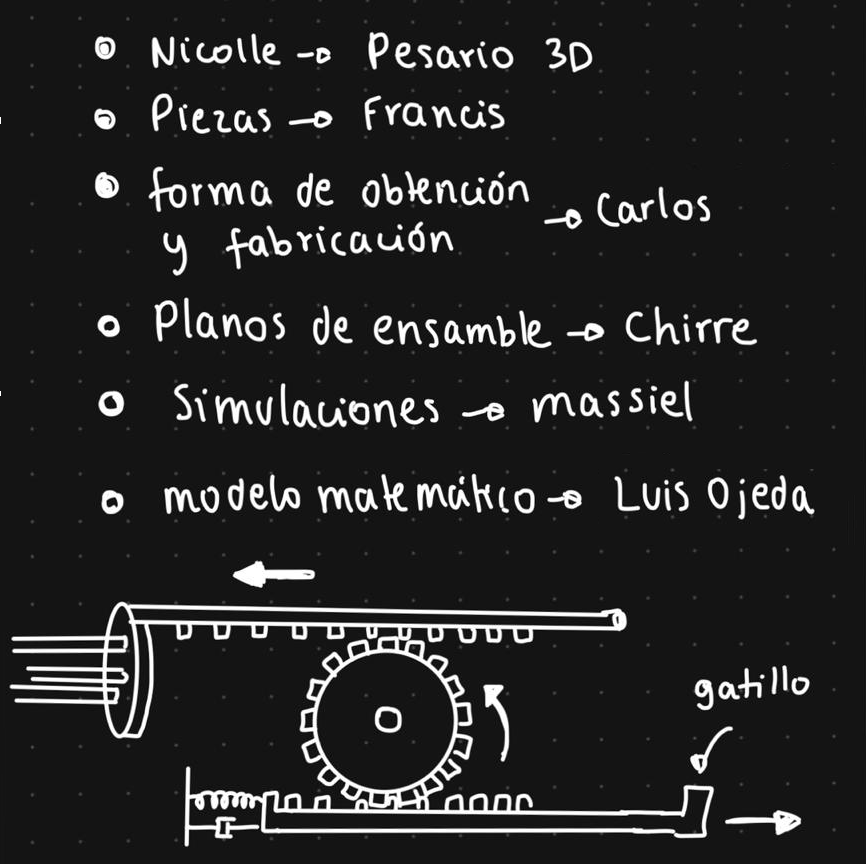 Nicolle → Pesario 3D
Piezas → Francis
forma de obtención → Carlos
y fabricación
Planos de ensamble → Chirre
Simulaciones → massiel
modelo matemático → Luis Ojeda
gatillo